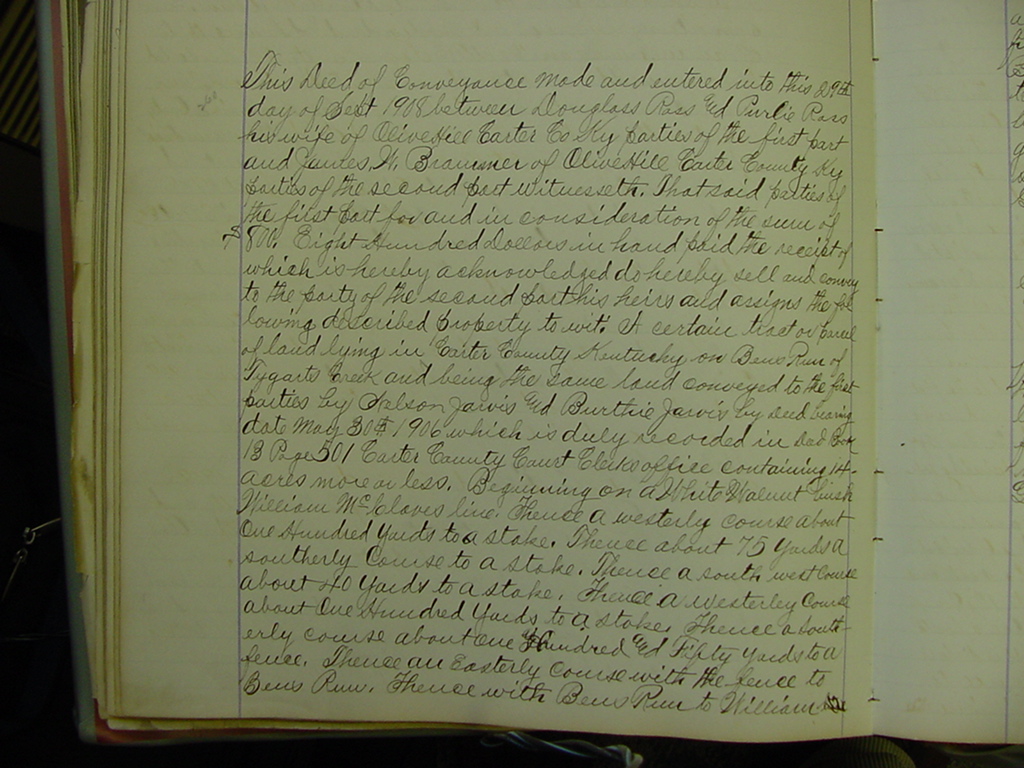 This Deed of Conveyance made and entered into this 29th
day of Sept 1908 between Douglass Ross and Purlie Ross
his wife of Olive Hill Carter Co Ky parties of the first part
and James W. Brammer of Olive Hill Carter County Ky
parties of the second part witnesseth. That said parties of
the first part for and in consideration of the sum of
$800. Eight Hundred Dollars in hand paid the receipt of
which is hereby acknowledged do hereby sell and convey
to the party of the second part his heirs and assigns the fol
lowing described property to wit. A certain tract or parcel
of land lying in Carter County Kentucky on Bens Run of
Tygarts Creek and being the same land conveyed to the first
parties by Nelson Jarvis and Burthie Jarvis by deed bearing
date May 30th 1906 which is duly recorded in Deed Book
13 Page 501 Carter County Court Clerks office containing 14
acres more or less. Beginning on a White Walnut
William McGloves line. Thence a westerly course about
One Hundred Yards to a stake. Thence about 75 Yards a
southerly Course to a stake. Thence a south west Course
about 40 Yards to a stake. Thence a Westerley Course
about One Hundred Yards to a stake, Thence a South-
erly course about One Hundred and Fifty Yards to a
fence. Thence an Easterly Course with the fence to
Bens Run. Thence with Bens Run to William